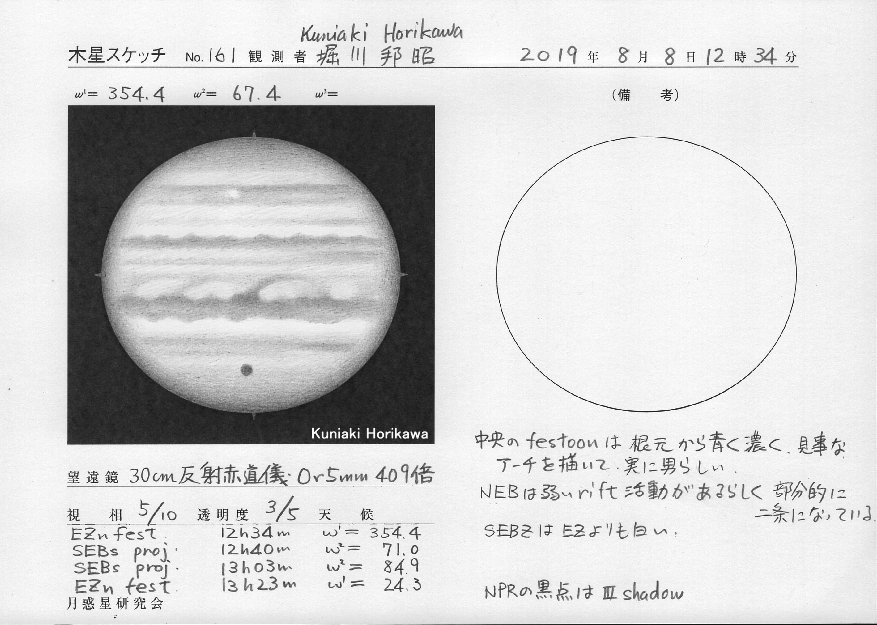 Kuniaki Horikawa
木星スケッチ No.161 観測者 堀川邦昭 2019年 8月 8日 12時 34分
ω¹= 354.4 ω²= 67.4 ω³=
(備 考)
Kuniaki Horikawa
中央の festoon は 根元から青く濃く、見事な
アーチを描いて、実に男らしい.
望遠鏡 30cm反射赤道儀. Or5mm 409倍
NEBは弱いrift活動があるらしく 部分的に
二条になっている.
視 相 5/10 透明度 3/5 天 候
EZn fest. 12h34m ω¹= 354.4
SEBs proj. 12h40m ω²= 71.0
SEBZは EZよりも白い.
SEBs proj. 13h03m ω²= 84.9
EZn fest. 13h23m ω¹= 24.3
NPRの黒点は III shadow
月惑星研究会